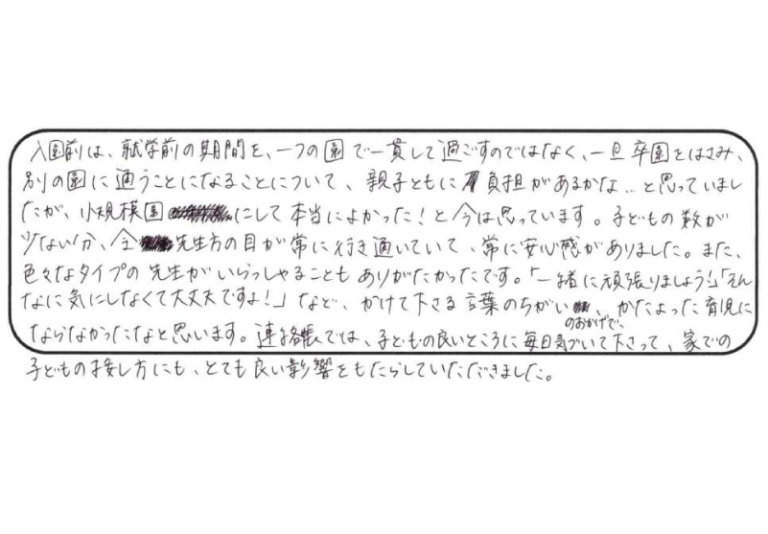 入園前は、就学前の期間を、一つの園で一貫して過ごすのではなく、一旦卒園をはさみ、
別の園に通うことになることについて、親子ともに負担があるかな‥と思っていまし
たが、小規模園にして本当によかった！と今は思っています。子どもの数が
少ない分、全先生方の目が常に行き通いていて、常に安心感がありました。また、
色々なタイプの先生がいらっしゃることもありがたかったです。「一緒に頑張りましょう!」「そん
なに気にしなくて大丈夫ですよ！」など、かけて下さる言葉のちがいのおかげで、かたよった育児に
ならなかったなと思います。連絡帳では、子どもの良いところに毎日気づいて下さって、家での
子どもの接し方にも、とても良い影響をもたらしていただきました。